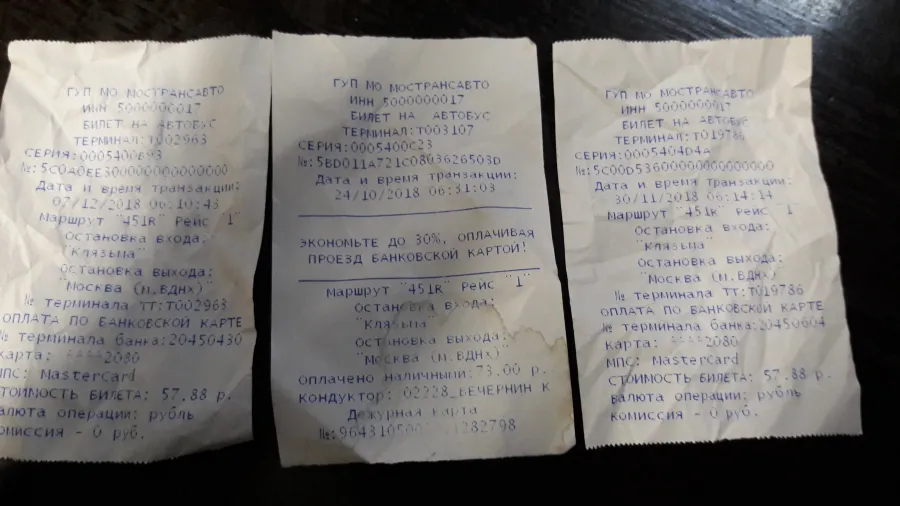 ГУП МО МОСТРАНСАВТО
ИНН 5000000017
БИЛЕТ НА АВТОБУС
ТЕРМИНАЛ:Т002963
СЕРИЯ:0005400693
№:5C0A0EE30000000000000000
Дата и время транзакции:
07/12/2018 06:10:43
Маршрут "451К" Рейс "1"
Остановка входа:
"Клязьма"
Остановка выхода:
"Москва (м.ВДНХ)"
№ терминала ТТ:Т002963
ОПЛАТА ПО БАНКОВСКОЙ КАРТЕ
№ терминала банка:20450430
Карта: ****2080
МПС: MasterCard
СТОИМОСТЬ БИЛЕТА: 57.88 р.
Валюта операции: рубль
Комиссия - 0 руб.
ГУП МО МОСТРАНСАВТО
ИНН 5000000017
БИЛЕТ НА АВТОБУС
ТЕРМИНАЛ:Т003107
СЕРИЯ:0005400C23
№:5BD011A721C0803626503D
Дата и время транзакции:
24/10/2018 06:31:03
ЭКОНОМЬТЕ ДО 30%, ОПЛАЧИВАЯ
ПРОЕЗД БАНКОВСКОЙ КАРТОЙ!
Маршрут "451К" Рейс "1"
Остановка входа:
"Клязьма"
Остановка выхода:
"Москва (м.ВДНХ)"
Оплачено наличными:73.00 р.
Кондуктор: 02228_ВЕЧЕРНИН К
Дежурная карта
ГУП МО МОСТРАНСАВТО
ИНН 5000000017
БИЛЕТ НА АВТОБУС
ТЕРМИНАЛ:Т019786
СЕРИЯ:0005404D4A
№:5C00D5360000000000000000
Дата и время транзакции:
30/11/2018 06:14:14
Маршрут "451К" Рейс "1"
Остановка входа:
"Клязьма"
Остановка выхода:
"Москва (м.ВДНХ)"
№ терминала ТТ:Т019786
ОПЛАТА ПО БАНКОВСКОЙ КАРТЕ
№ терминала банка:20450604
Карта: ****2080
МПС: MasterCard
СТОИМОСТЬ БИЛЕТА: 57.88 р.
Валюта операции: рубль
Комиссия - 0 руб.